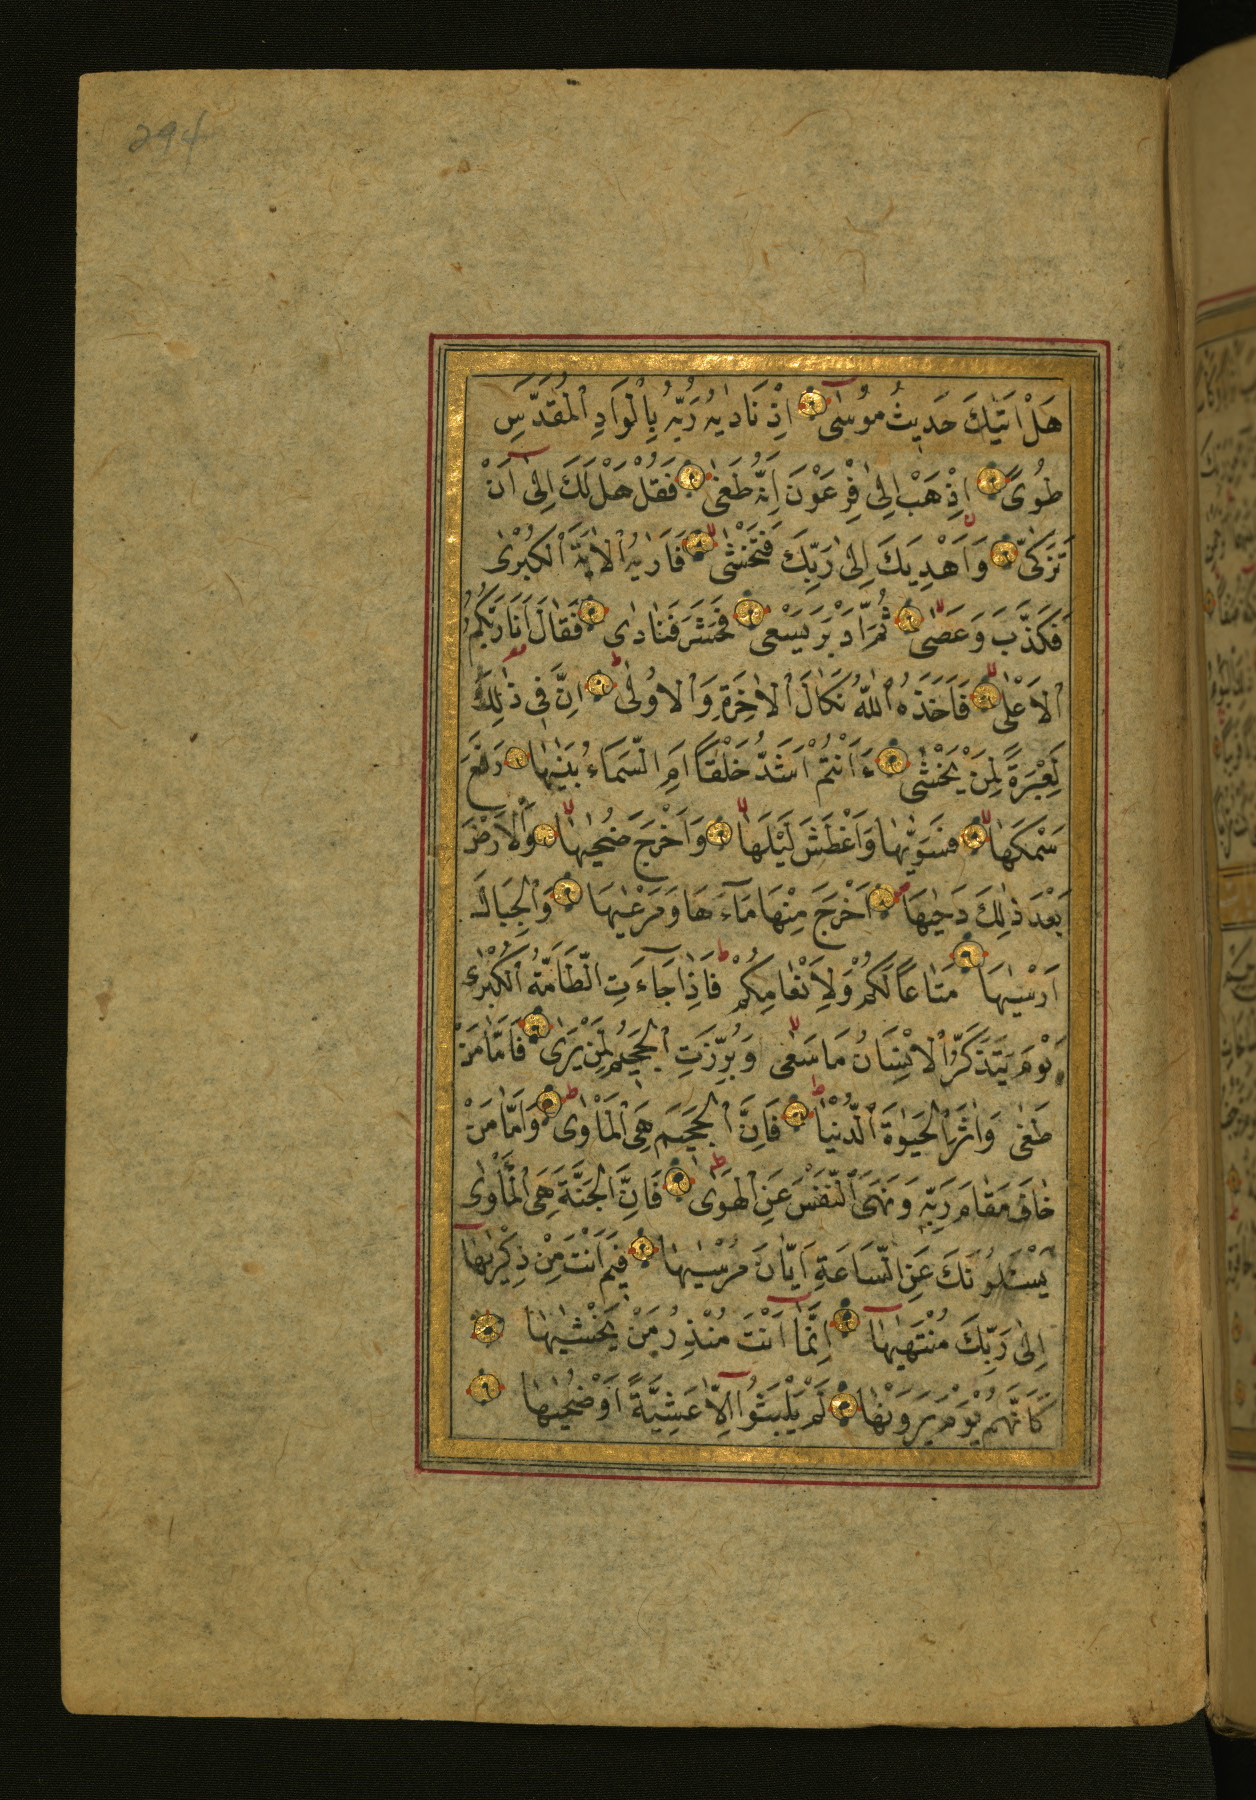 294
هَلْ اَتٰيكَ حَدِيثُ مُوسٰى اِذْ نَادٰيهُ رَبُّهُ بِالْوَادِ الْمُقَدَّسِ
طُوًى اِذْهَبْ اِلٰى فِرْعَوْنَ اِنَّهُ طَغٰى فَقُلْ هَلْ لَكَ اِلٰى اَنْ
تَزَكّٰى وَاَهْدِيَكَ اِلٰى رَبِّكَ فَتَخْشٰى فَاَرٰيهُ الْاٰيَةَ الْكُبْرٰى
فَكَذَّبَ وَعَصٰى ثُمَّ اَدْبَرَ يَسْعٰى فَحَشَرَ فَنَادٰى فَقَالَ اَنَا رَبُّكُمُ
الْاَعْلٰى فَاَخَذَهُ اللّٰهُ نَكَالَ الْاٰخِرَةِ وَالْاُولٰى اِنَّ فِى ذٰلِكَ
لَعِبْرَةً لِمَنْ يَخْشٰى ءَاَنْتُمْ اَشَدُّ خَلْقًا اَمِ السَّمَاءُ بَنٰيهَا رَفَعَ
سَمْكَهَا فَسَوّٰيهَا وَاَغْطَشَ لَيْلَهَا وَاَخْرَجَ ضُحٰيهَا وَالْاَرْضَ
بَعْدَ ذٰلِكَ دَحٰيهَا اَخْرَجَ مِنْهَا مَآءَهَا وَمَرْعٰيهَا وَالْجِبَالَ
اَرْسٰيهَا مَتَاعًا لَكُمْ وَلِاَنْعَامِكُمْ فَاِذَا جَآءَتِ الطَّامَّةُ الْكُبْرٰى
يَوْمَ يَتَذَكَّرُ الْاِنْسَانُ مَا سَعٰى وَبُرِّزَتِ الْجَحِيمُ لِمَنْ يَرٰى فَاَمَّا مَنْ
طَغٰى وَاٰثَرَ الْحَيٰوةَ الدُّنْيَا فَاِنَّ الْجَحِيمَ هِىَ الْمَاْوٰى وَاَمَّا مَنْ
خَافَ مَقَامَ رَبِّهِ وَنَهَى النَّفْسَ عَنِ الْهَوٰى فَاِنَّ الْجَنَّةَ هِىَ الْمَاْوٰى
يَسْـَٔلُونَكَ عَنِ السَّاعَةِ اَيَّانَ مُرْسٰيهَا فِيمَ اَنْتَ مِنْ ذِكْرٰيهَا
اِلٰى رَبِّكَ مُنْتَهٰيهَا اِنَّمَا اَنْتَ مُنْذِرُ مَنْ يَخْشٰيهَا
كَاَنَّهُمْ يَوْمَ يَرَوْنَهَا لَمْ يَلْبَثُوا اِلَّا عَشِيَّةً اَوْ ضُحٰيهَا